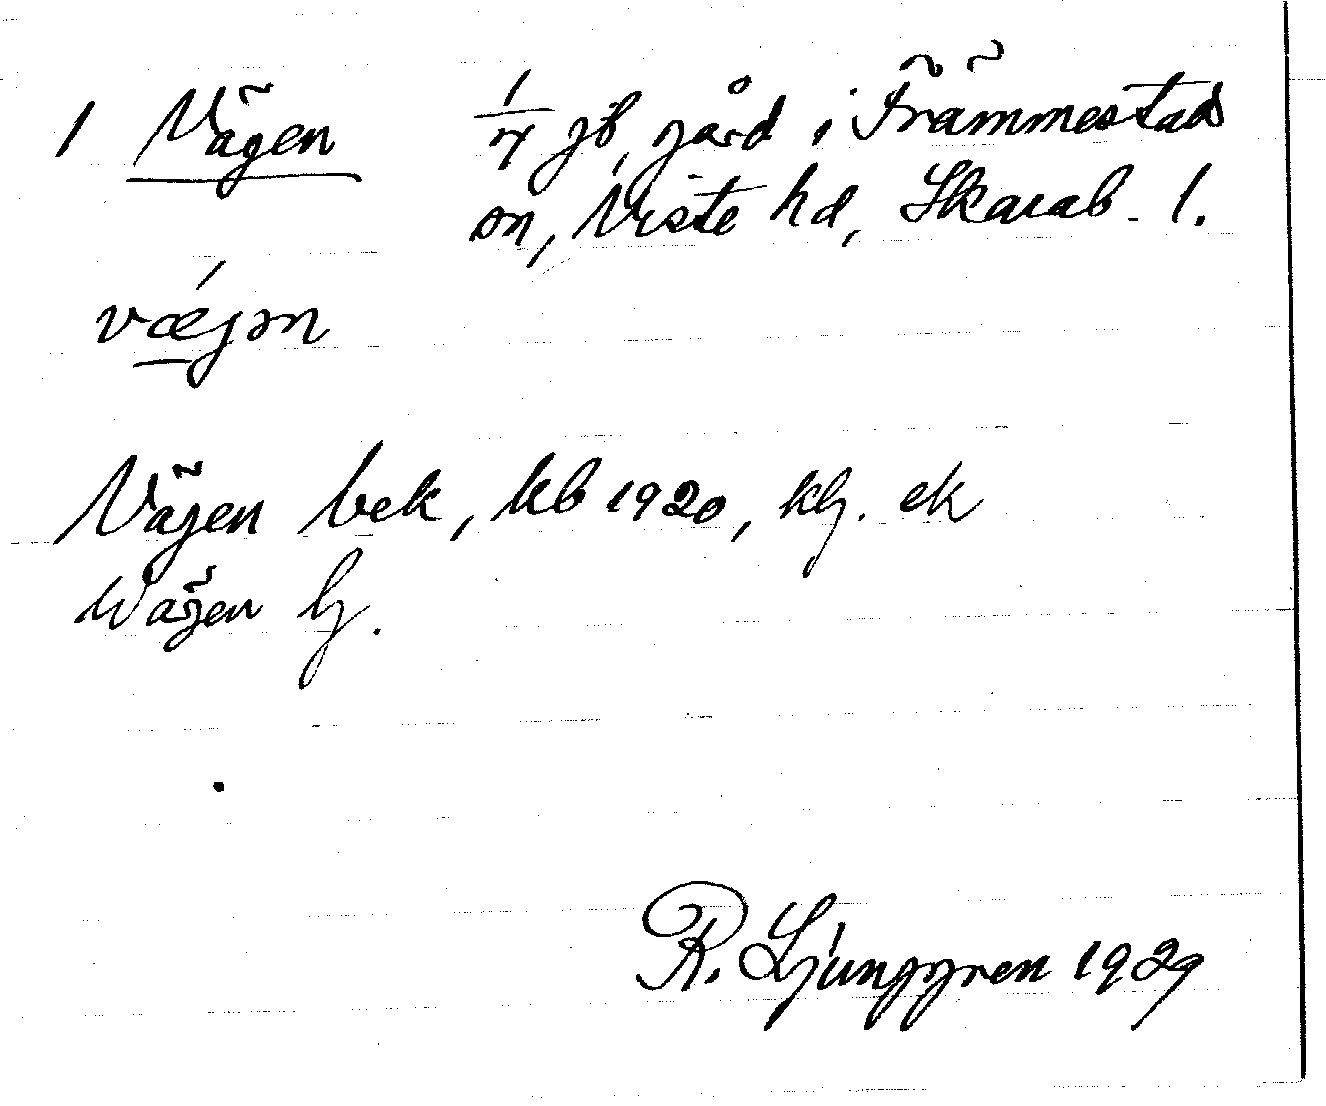 1 Vägen 1/4 jb, gård i Främmestad
sn, Viste hd, Skarab. l.
vǽjən
Vägen bek, kb 1920, klj. ek
Wägen lj.
R. Ljunggren 1929